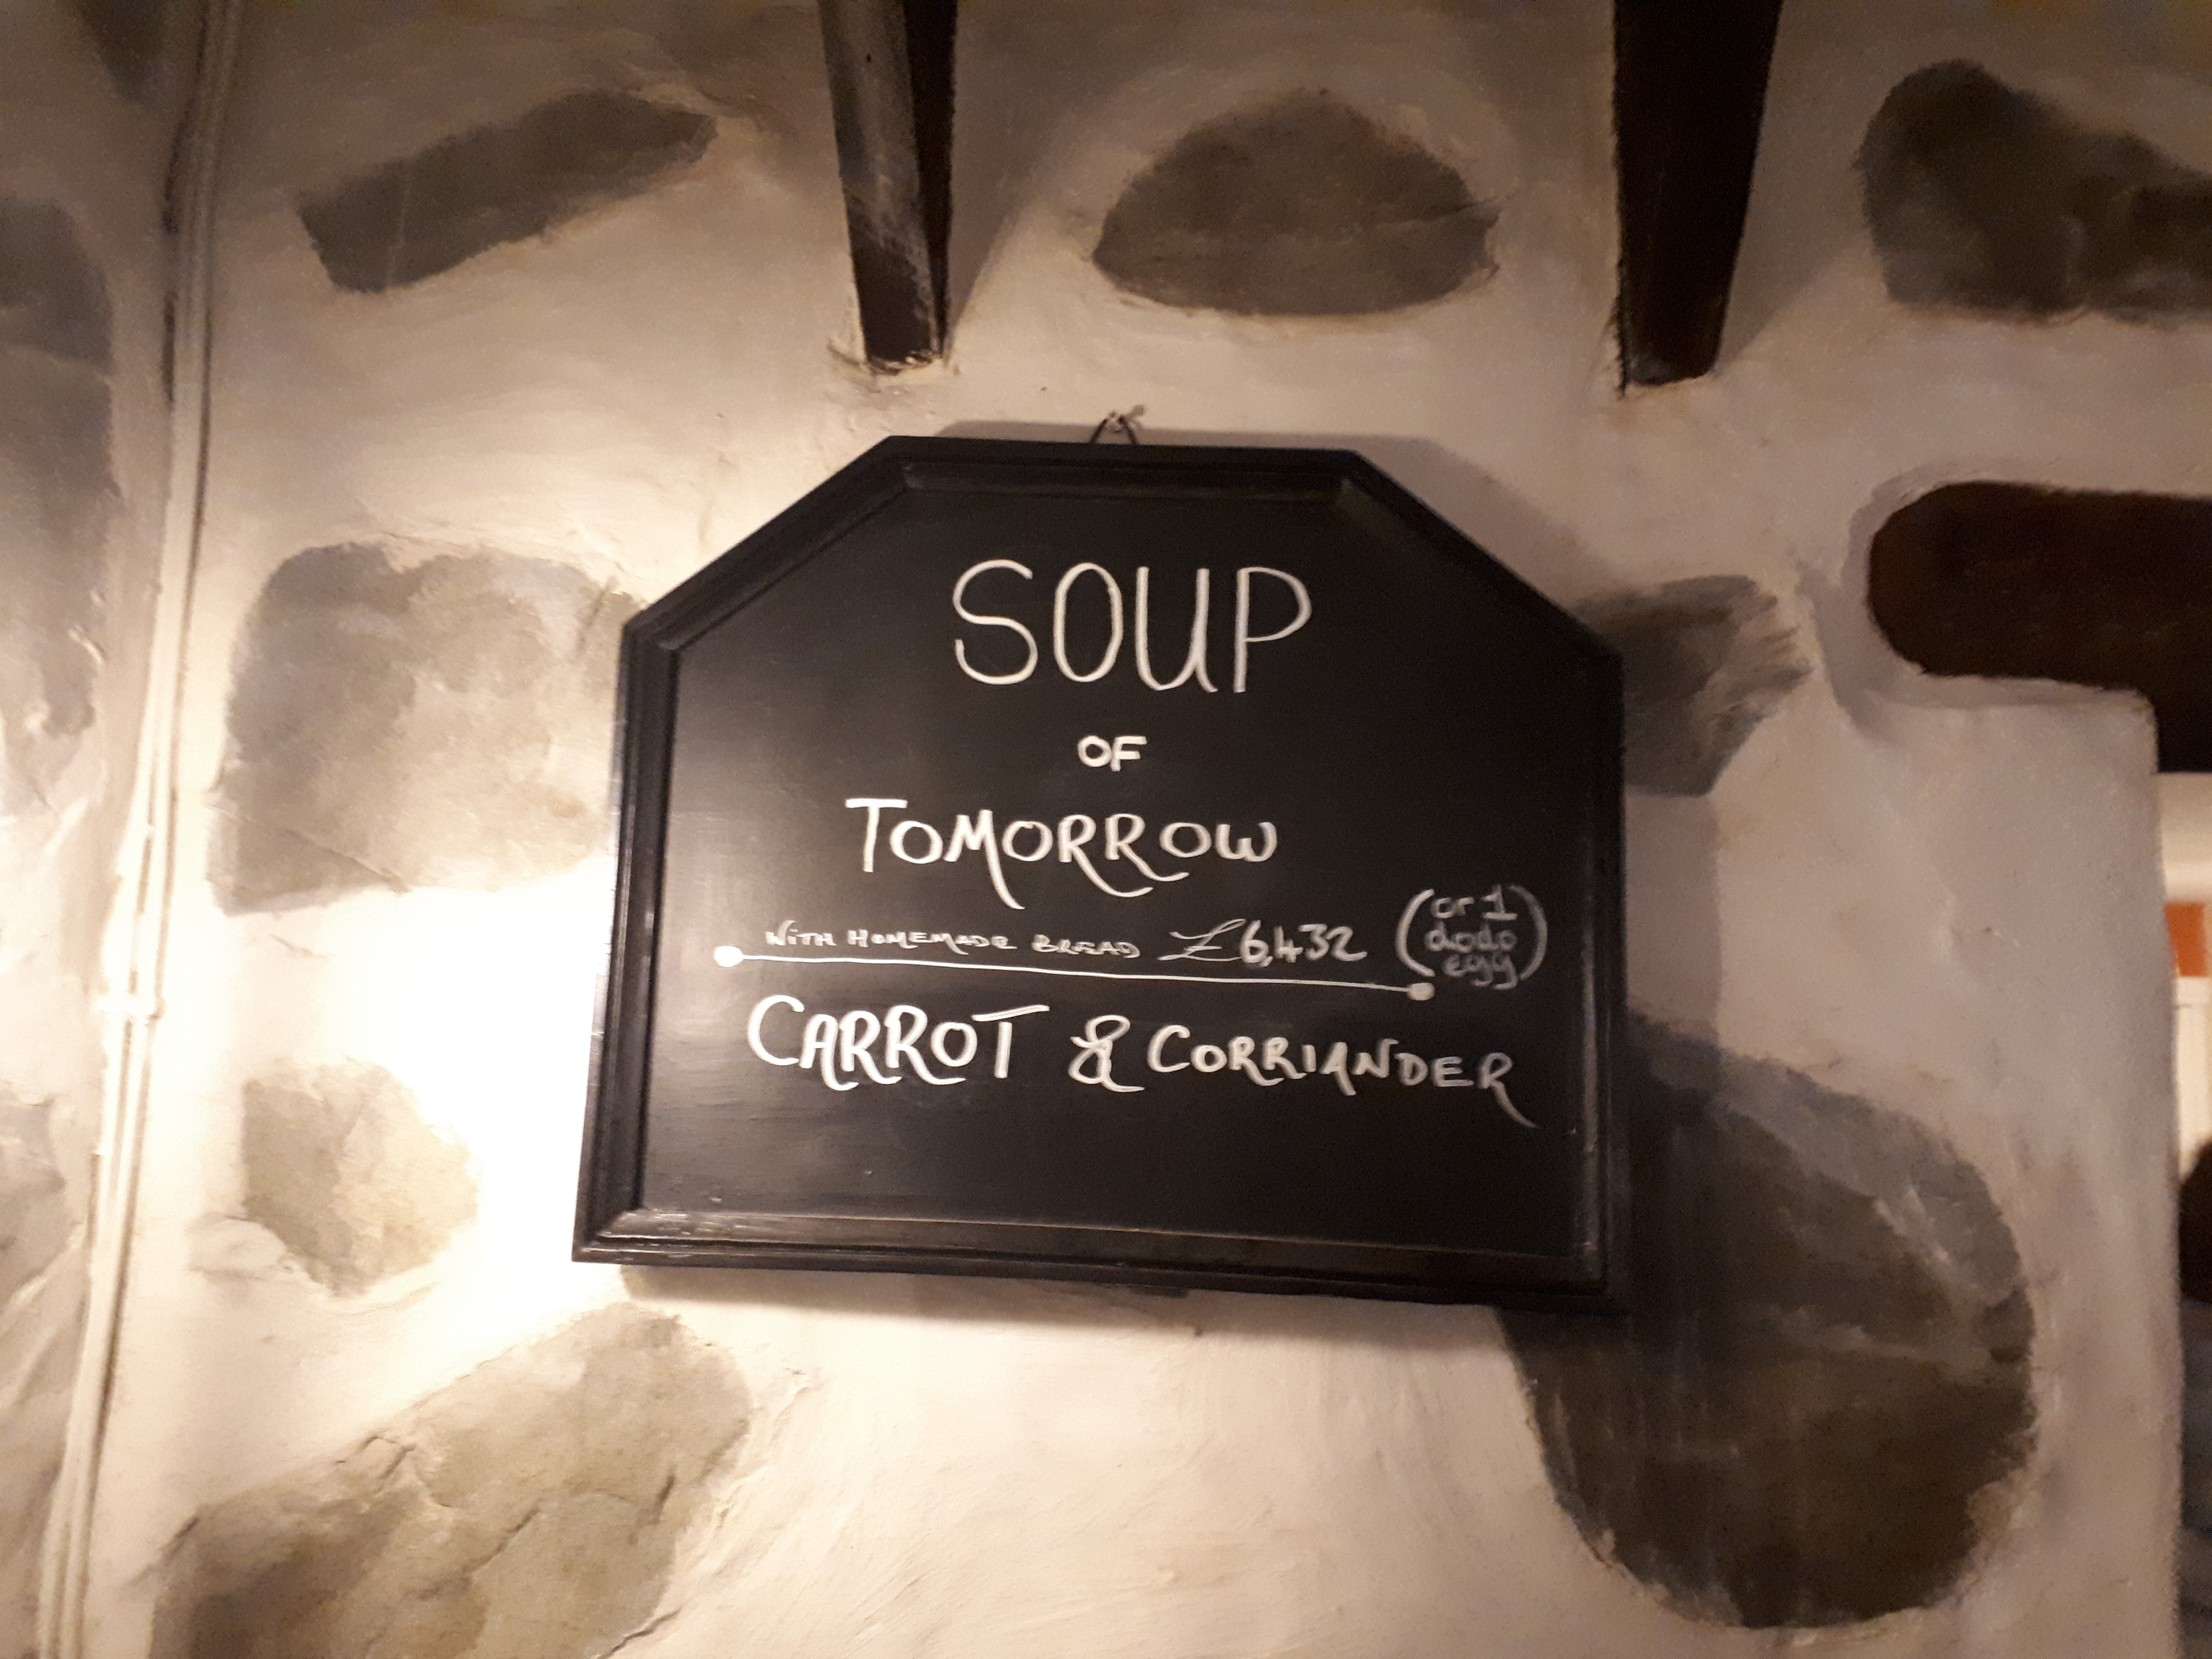 SOUP
OF
TOMORROW
WITH HOMEMADE BREAD £6,432 (or 1 dodo egg)
CARROT & CORRIANDER